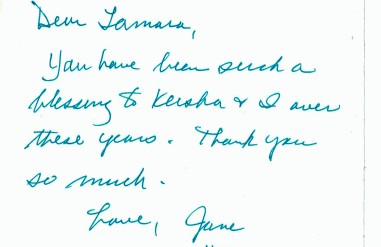 Dear Tamara,
You have been such a
blessing to Keisha & I over
these years. Thank you
so much.
Love, Jane